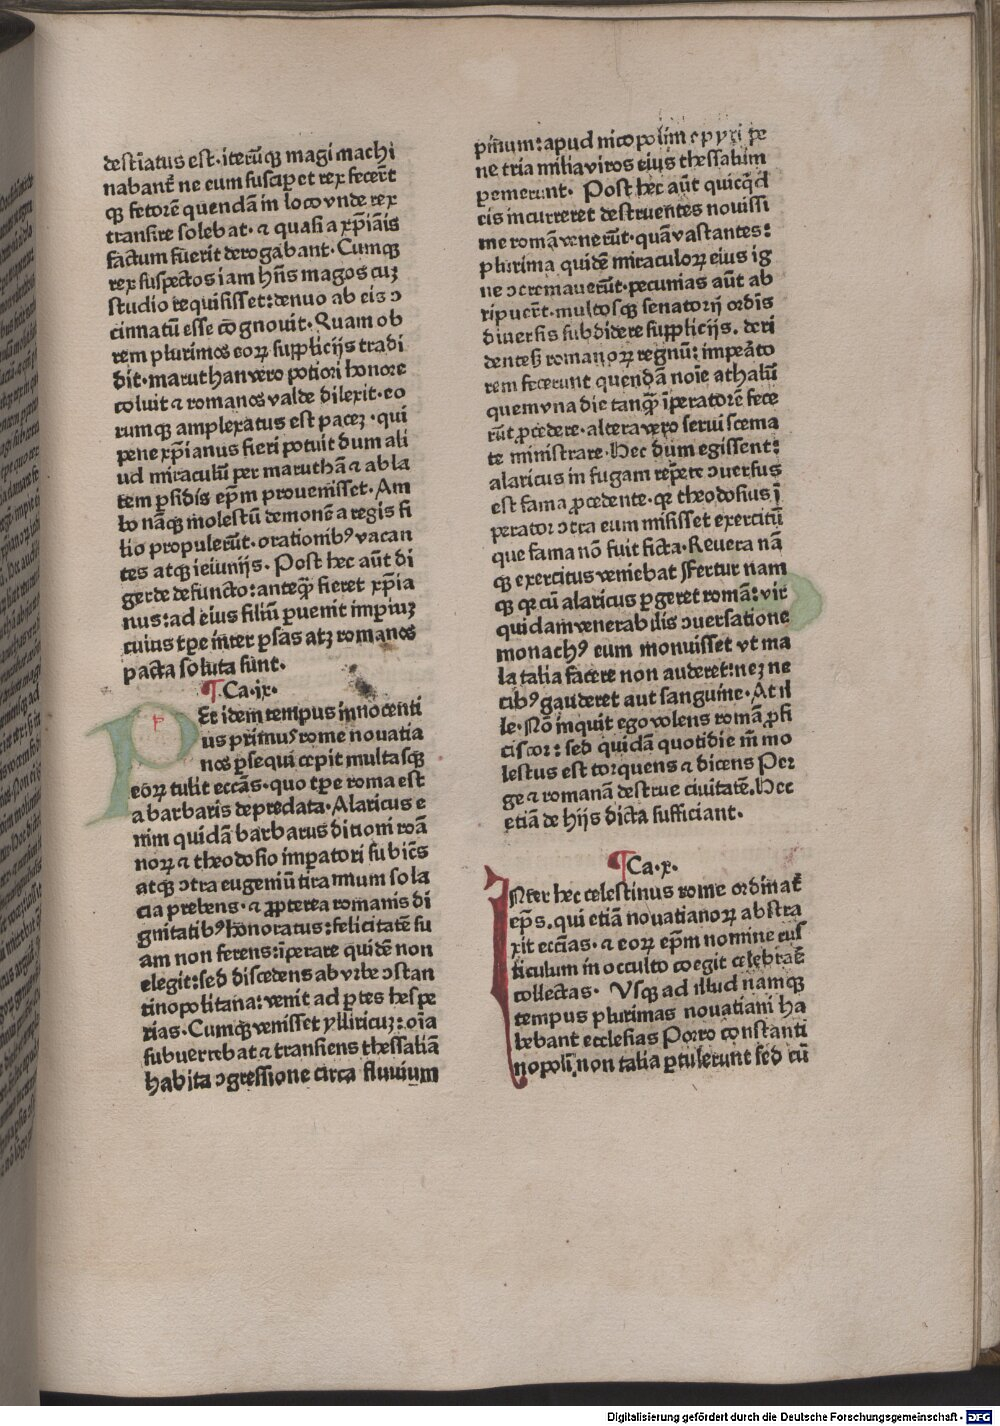 destiatus est·iterūqꝫ magi machi
nabant̄ ne eum susciperet rex fecert̄
qꝫ fetorē quendā in loco vnde rex
transire solebat·⁊ quasi a xp̄iāis
factum fuerit derogabant·Cumqꝫ
rex suspectos iam hn̄s magos cuꝫ
studio requisisset:denuo ab eis ꝯ
cinnatū esse cōgnouit·Quam ob
rem plurimos eoꝝ supplicijs tradi
dit·maruthan vero potiori honore
coluit ⁊ romanos valde dilexit·eo
rumqꝫ amplexatus est paceꝫ·qui
pene xp̄ianus fieri potuit dum ali
ud miraculū per maruthā ⁊ abla
tem ꝑsidis ep̄m prouenisset·Am
bo nāqꝫ molestū demonē a regis fi
lio propulerūt·orationibꝰ vacan
tes atqꝫ ieiunijs·Post hec aūt di
gerde defuncto:anteqꝫ̄ fieret xp̄ia
nus:ad eius filiū ꝑuenit imꝑiuꝫ
cuius tꝑe inter ꝑsas atꝫ romanos
pacta soluta sunt·
¶Ca·ix·
PEr idem tempus innocenti
us primus rome nouatia
nos ꝑsequi cepit multasqꝫ
eoꝝ tulit eccās·quo tꝑe roma est
a barbaris depredata·Alaricus e
nim quidā barbarus ditioni roā
noꝝ ⁊ theodosio imꝑatori subiēs
atqꝫ ꝯtra eugeniū tirannum sola
cia prebens·⁊ ꝓpterea romanis di
gnitatibꝰ honoratus:felicitatē su
am non ferens:īperare quidē non
elegit:sed discedens ab vrbe ꝯstan
tinopolitana:venit ad ꝑtes hespe
rias·Cumqꝫ venisset ylliricuꝫ:oīa
subuertebat ⁊ transiens thessaliā
habita ꝯgressione circa fluuium
pin̄um:apud nicopolim epyri pe
ne tria milia viros eius thessali īm
pemerunt· Post hec aūt quicqͥd
eis incurreret destruentes nouissi
me romā venerūt·quā vastantes:
plurima quidē miraculoꝝ eius ig
ne ꝯcremauerūt·pecunias aūt ab
ripuerūt·multosqꝫ senatorij ordīs
diuersis subdidere supplicijs. deri
dentes romanoꝝ regnū: impeātō
rem fecerunt quendā noīe athalū
quem vna die tanqꝫ̄ īperatorē fece
rūt ꝓcedere·altera vero serui scema
te ministrare·Hec dum egissent:
alaricus in fugam repēte ꝯuersus
est fama ꝓcedente·qꝛ theodosius ī
perator ꝯtra eum misisset exercitū
que fama nō fuit ficta·Reuera nā
qꝫ exercitus veniebat Fertur nam
qꝫ qꝛ cū alaricus ꝑgeret romā:vir
quidam venerabilis ꝯuersatione
monachꝰ eum monuisset vt ma
la talia facere non auderet:neꝫ ne
cibꝰ gauderet aut sanguine·At il
le·Nō inquit ego volens romā ꝓfi
ciscor: sed quidā quotidie m̄ mo
lestus est torquens ⁊ dicens Per
ge ⁊ romanā destrue ciuitatē.Hec
etiā de hijs dicta sufficiant·
¶Ca·x·
INter hec celestinus rome ordinat̄
ep̄s. qui etiā nouatianoꝝ abstra
xit eccīas·⁊ eoꝝ ep̄m nomine rus
ticulum in occulto coegit celebrar̄
collectas· Vsqꝫ ad illud namqꝫ
tempus plurimas nouatiani ha
bebant ecclesias Porro constanti
nopoli non talia ꝑtulerunt sed cū
Digitalisierung gefördert durch die Deutsche Forschungsgemeinschaft · DFG